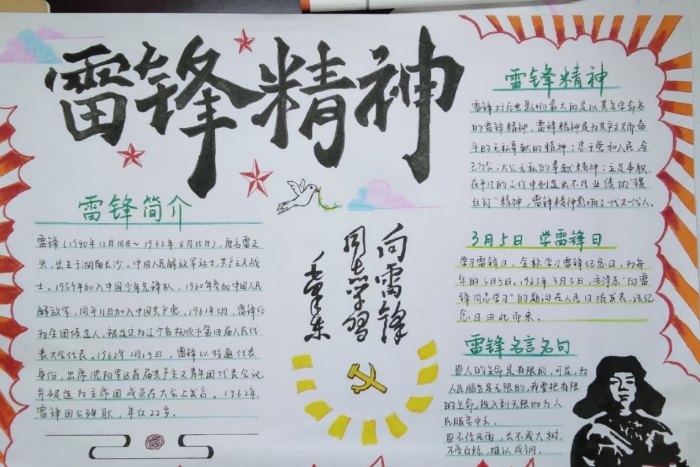 雷锋精神
雷锋简介
雷锋(1940年12月18日~1962年8月15日),原名雷正
兴,出生于湖南长沙,中国人民解放军战士,共产主义战
士。1954年加入中国少年先锋队,1960年参加中国人民
解放军,同年11月加入中国共产党。1961年
表大会代表。1962年2月19日,雷锋以特邀代表
身份,出席沈阳军区首届共产主义青年团代表会议,
并被选为主席团成员在大会上发言。1962年,
雷锋因公殉职,年仅22岁。
向雷锋
同志学习
毛泽东
雷锋精神
雷锋对后世影响最大的是以其名字命名
的雷锋精神,雷锋精神是为共产主义而奋
斗的无私奉献的精神;忠于党和人民、舍
己为公、大公无私的奉献精神;立足本职、
在平凡的工作中创造出不凡业绩的“螺
丝钉”精神,雷锋精神影响了一代又一代人。
3月5日 学雷锋日
学习雷锋日,全称学习雷锋纪念日,为每
年的3月5日。1963年3月5日,毛泽东“向雷
锋同志学习”的题词在人民日报发表,该纪
念日由此而来。
雷锋名言名句
①人的生命是有限的,可是,为
人民服务是无限的,我要把有限
的生命,投入到无限的为人
民服务中去。
②不经风雨,长不成大树,
不受百炼,难以成钢。